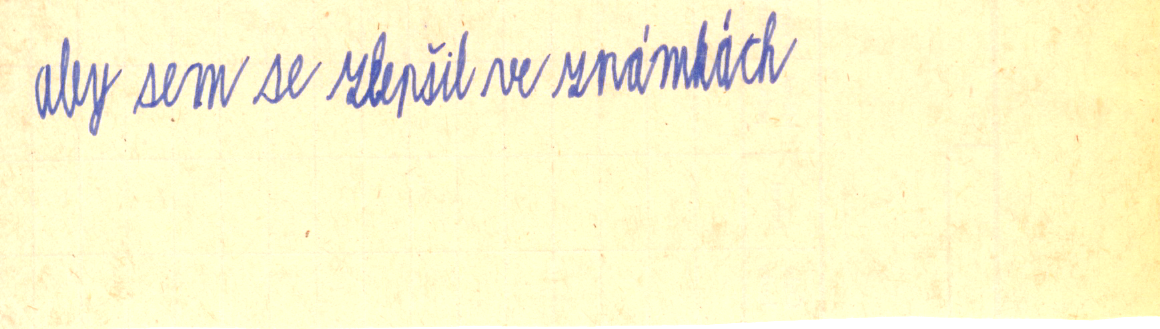 aby sem se zlepšil ve známkách